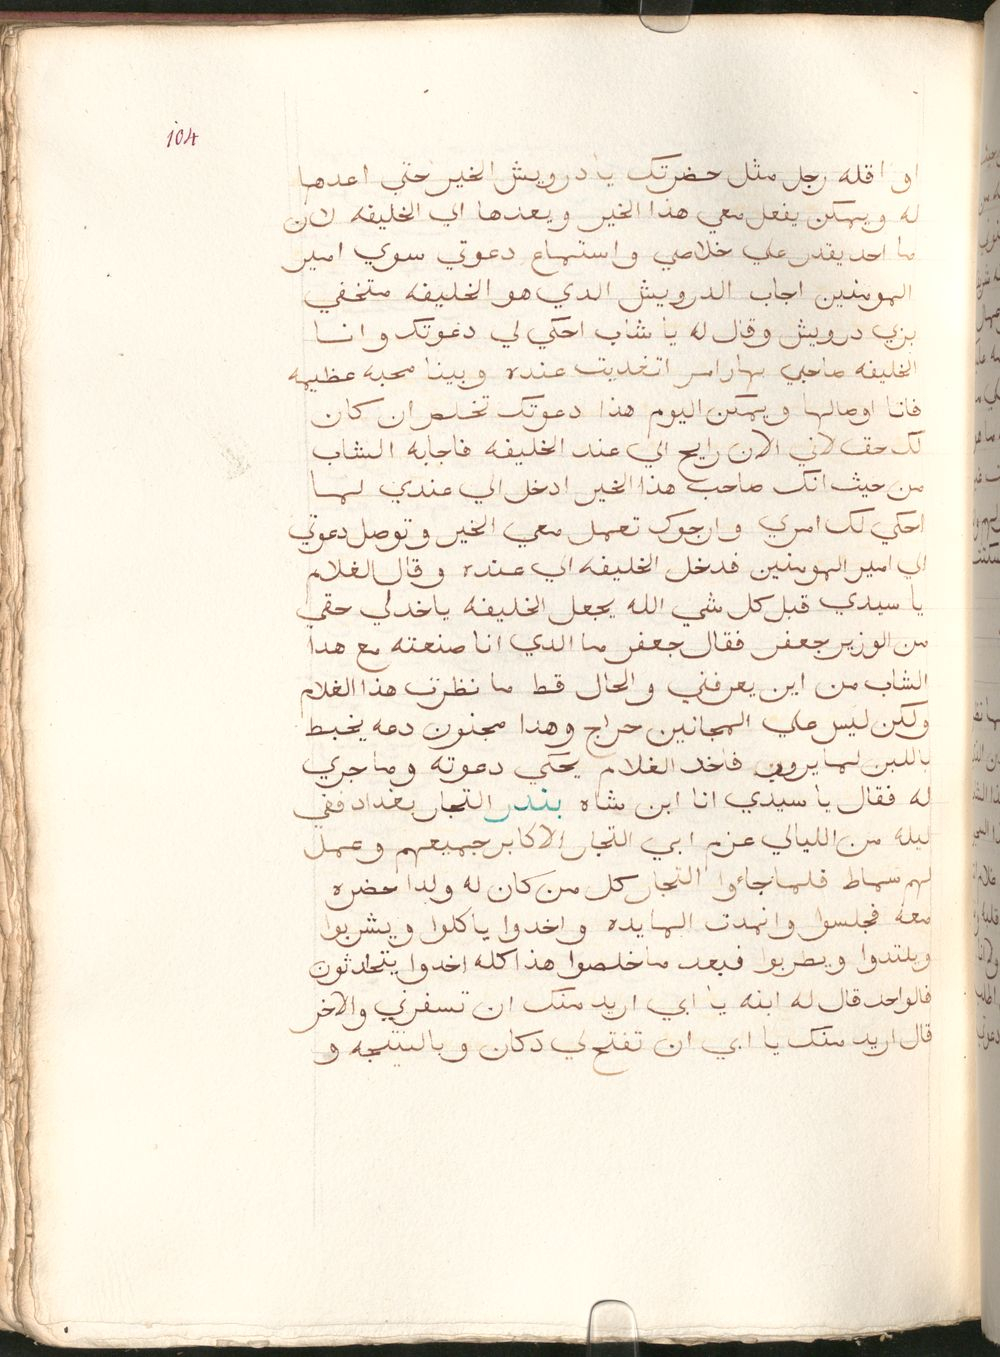 104
او اقله رجل مثل حضرتك يا درويش الخير حتي اعدها
له ويمكن يفعل معي هذا الخير ويعدها الي الخليفه لان
ما احد يقدر علي خلاصي واستماع دعوتي سوي امير
المومنين اجاب الدرويش الدي هو الخليفه متخفي
بزي درويش وقال له يا شاب احكي لي دعوتك وانا
الخليفه صاحبي بهار امس اتغديت عنده وبينا محبه عظيمه
فانا اوصالها ويمكن اليوم هذا دعوتك تخلص ان كان
لك حق لاني الان رايح الي عند الخليفه فاجابه الشاب
من حيث انك صاحب هذا الخير ادخل الي عندي لما
احكي لك امري وارجوك تعمل معي الخير وتوصل دعوتي
الي امير المومنين فدخل الخليفه الي عنده وقال الغلام
يا سيدي قبل كل شي الله يجعل الخليفه ياخد لي حقي
من الوزير جعفر فقال جعفر ما الدي انا صنعته مع هدا
الشاب من اين يعرفني والحال قط ما نظرت هذا الغلام
ولكن ليس علي المجانين حراج وهدا مجنون دعه يخبط
باللبن لما يروب فاخد الغلام يحكي دعوته وما جري
له فقال يا سيدي انا ابن شاه بندر التجار بغداد ففي
ليله من الليالي عزم ابي التجار الاكابر جميعهم وعمل
لهم سماط فلما جاءوا التجار كل من كان له ولدا حضره
معه فجلسوا وانمدت المايده واخدوا ياكلوا ويشربوا
ويلتدوا ويطربوا فبعد ما خلصوا هذا كله اخدوا يتحادثون
فالواحد قال له ابنه يا ابي اريد منك ان تسفرني والاخر
قال اريد منك يا ابي ان تفتح لي دكان وبالنتيجه و